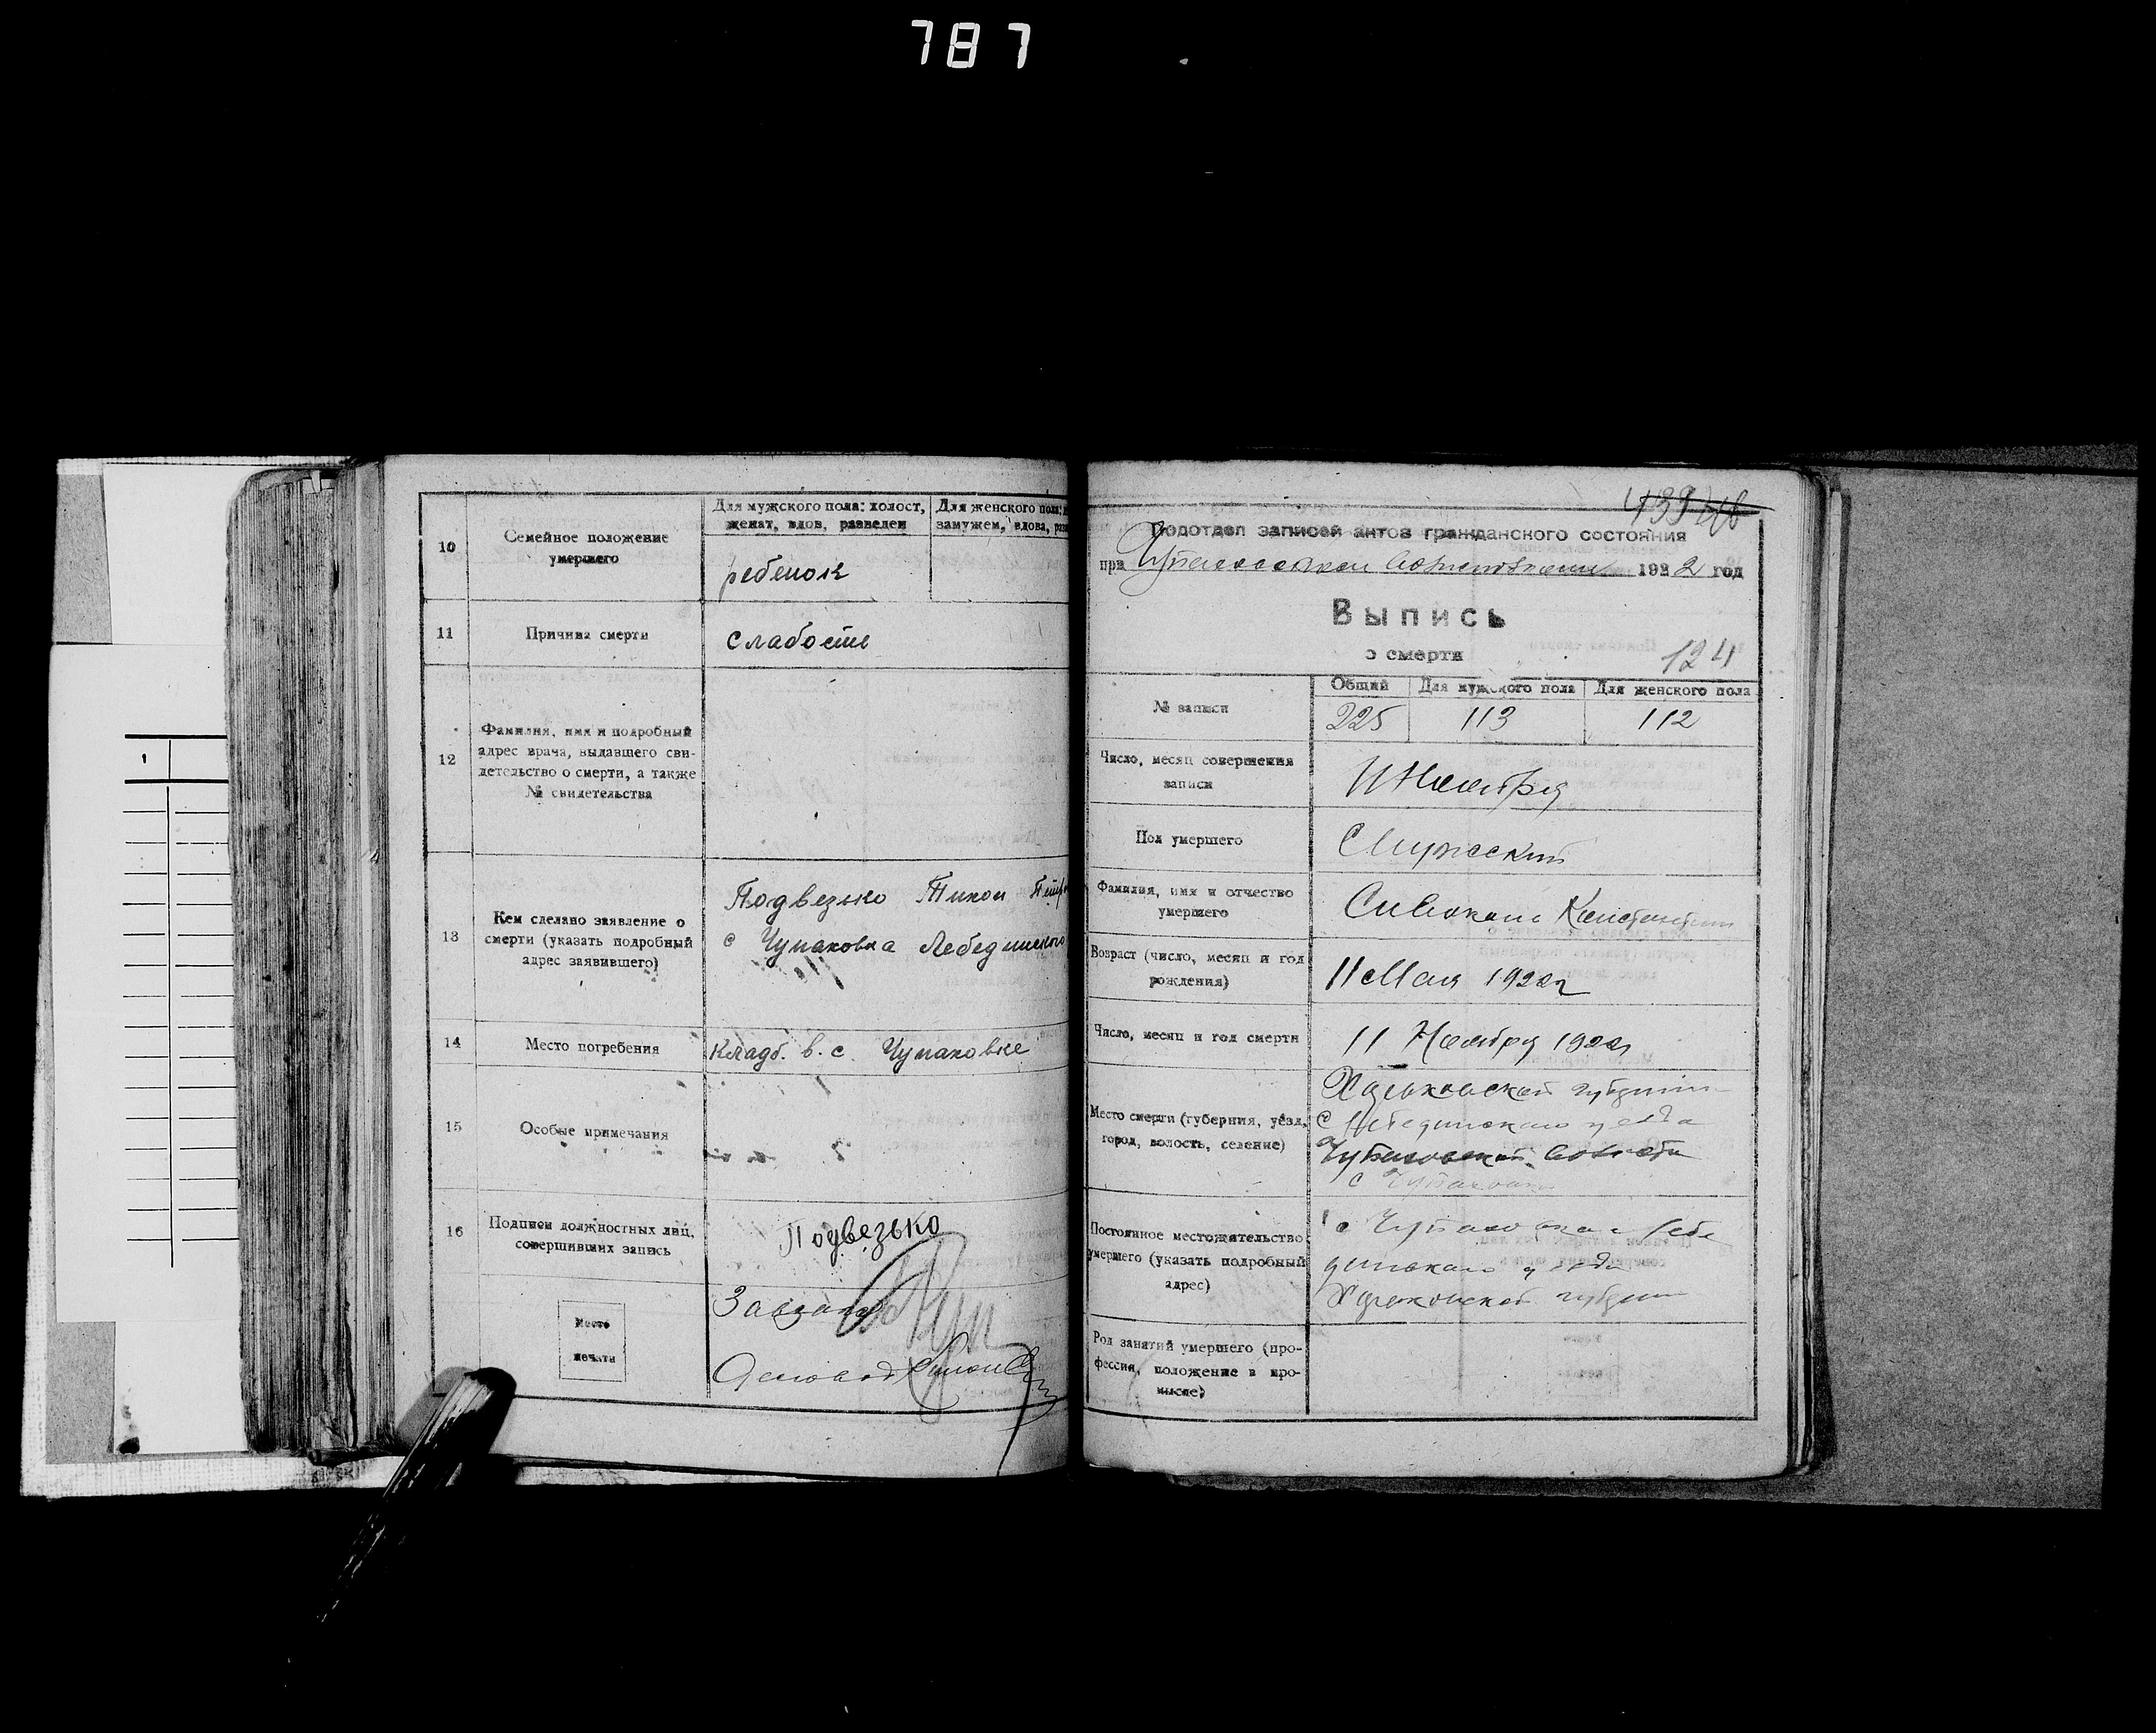 787
10
Семейное положение
умершего
Для мужского пола: холост,
женат, вдов, разведен
Для женского пола:
замужем, вдова,
ребенок
11
Причина смерти
слабость
12
Фамилия, имя и подробный
адрес врача, выдавшего сви-
детельство о смерти, а также
№ свидетельства
13
Кем сделано заявление о
смерти (указать подробный
адрес заявившего)
Подвезько Тихон
с Чупаховка Лебединского
14
Место погребения
Кладб. в. с Чупаховке
15
Особые примечания
16
Подписи должностных лиц,
совершивших запись
Подвезько
Место
печати
1
Подотдел записей актов гражданского состояния
при 1922 год
Выпись
о смерти
124
№ записи
Общий
Для мужского пола
Для женского пола
225
113
112
Число, месяц совершения
записи
11 Ноября
Пол умершего
Мужской
Фамилия, имя и отчество
умершего
Константин
Возраст (число, месяц и год
рождения)
11 Мая 1922
Число, месяц и год смерти
11 Ноября 1922
Место смерти (губерния, уезд,
город, волость, селение)
Харьковской губернии
Лебединского уезда
Постоянное местожительство
умершего (указать подробный
адрес)
с Лебе
динского уезда
Харьковской губернии
Род занятий умершего (про-
фессия, положение в про-
мысле)